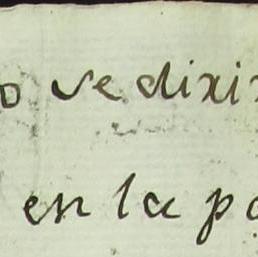 o se dixi
en la po